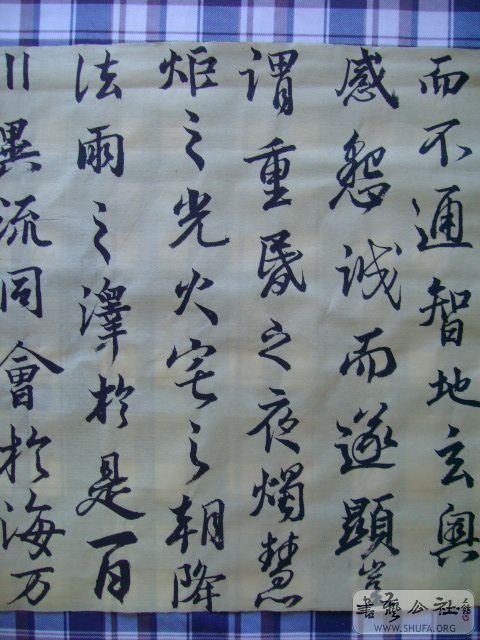 而不通智地玄奧
感懇誠而遂顯豈
謂重昬之夜燭慧
炬之光火宅之朝降
法雨之澤於是百
川異流同會於海万
書藝公社
WWW.SHUFA.ORG